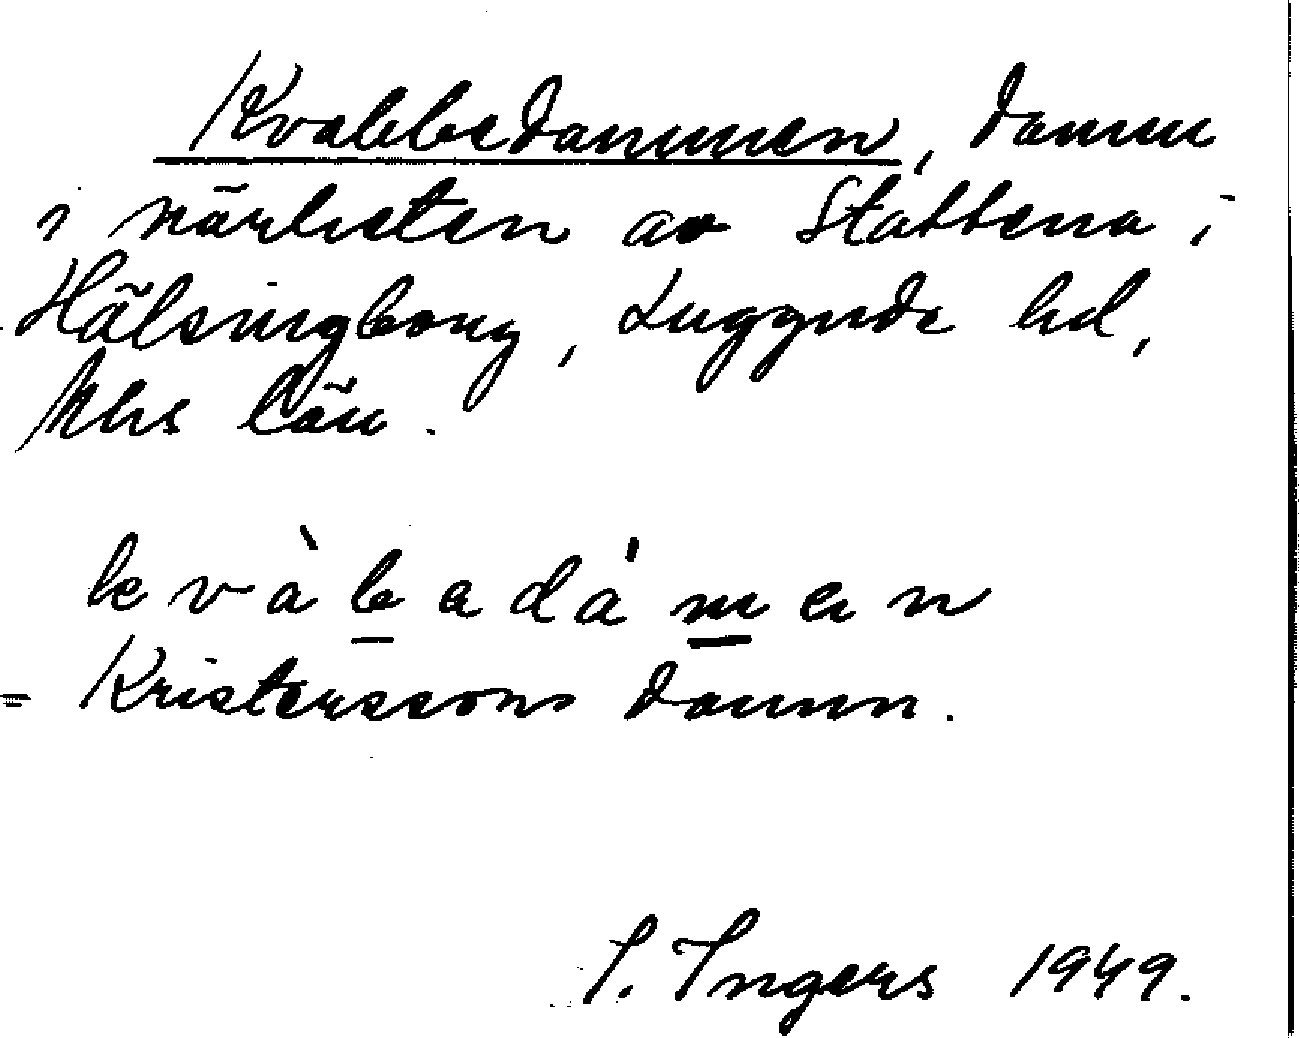 Kvabbedammen, damm
i närheten av Stattena i
Hälsingborg, Luggude hd,
Mhs län.
k v à b a d á m e n
= Kristerssons damm.
I. Ingers 1949.